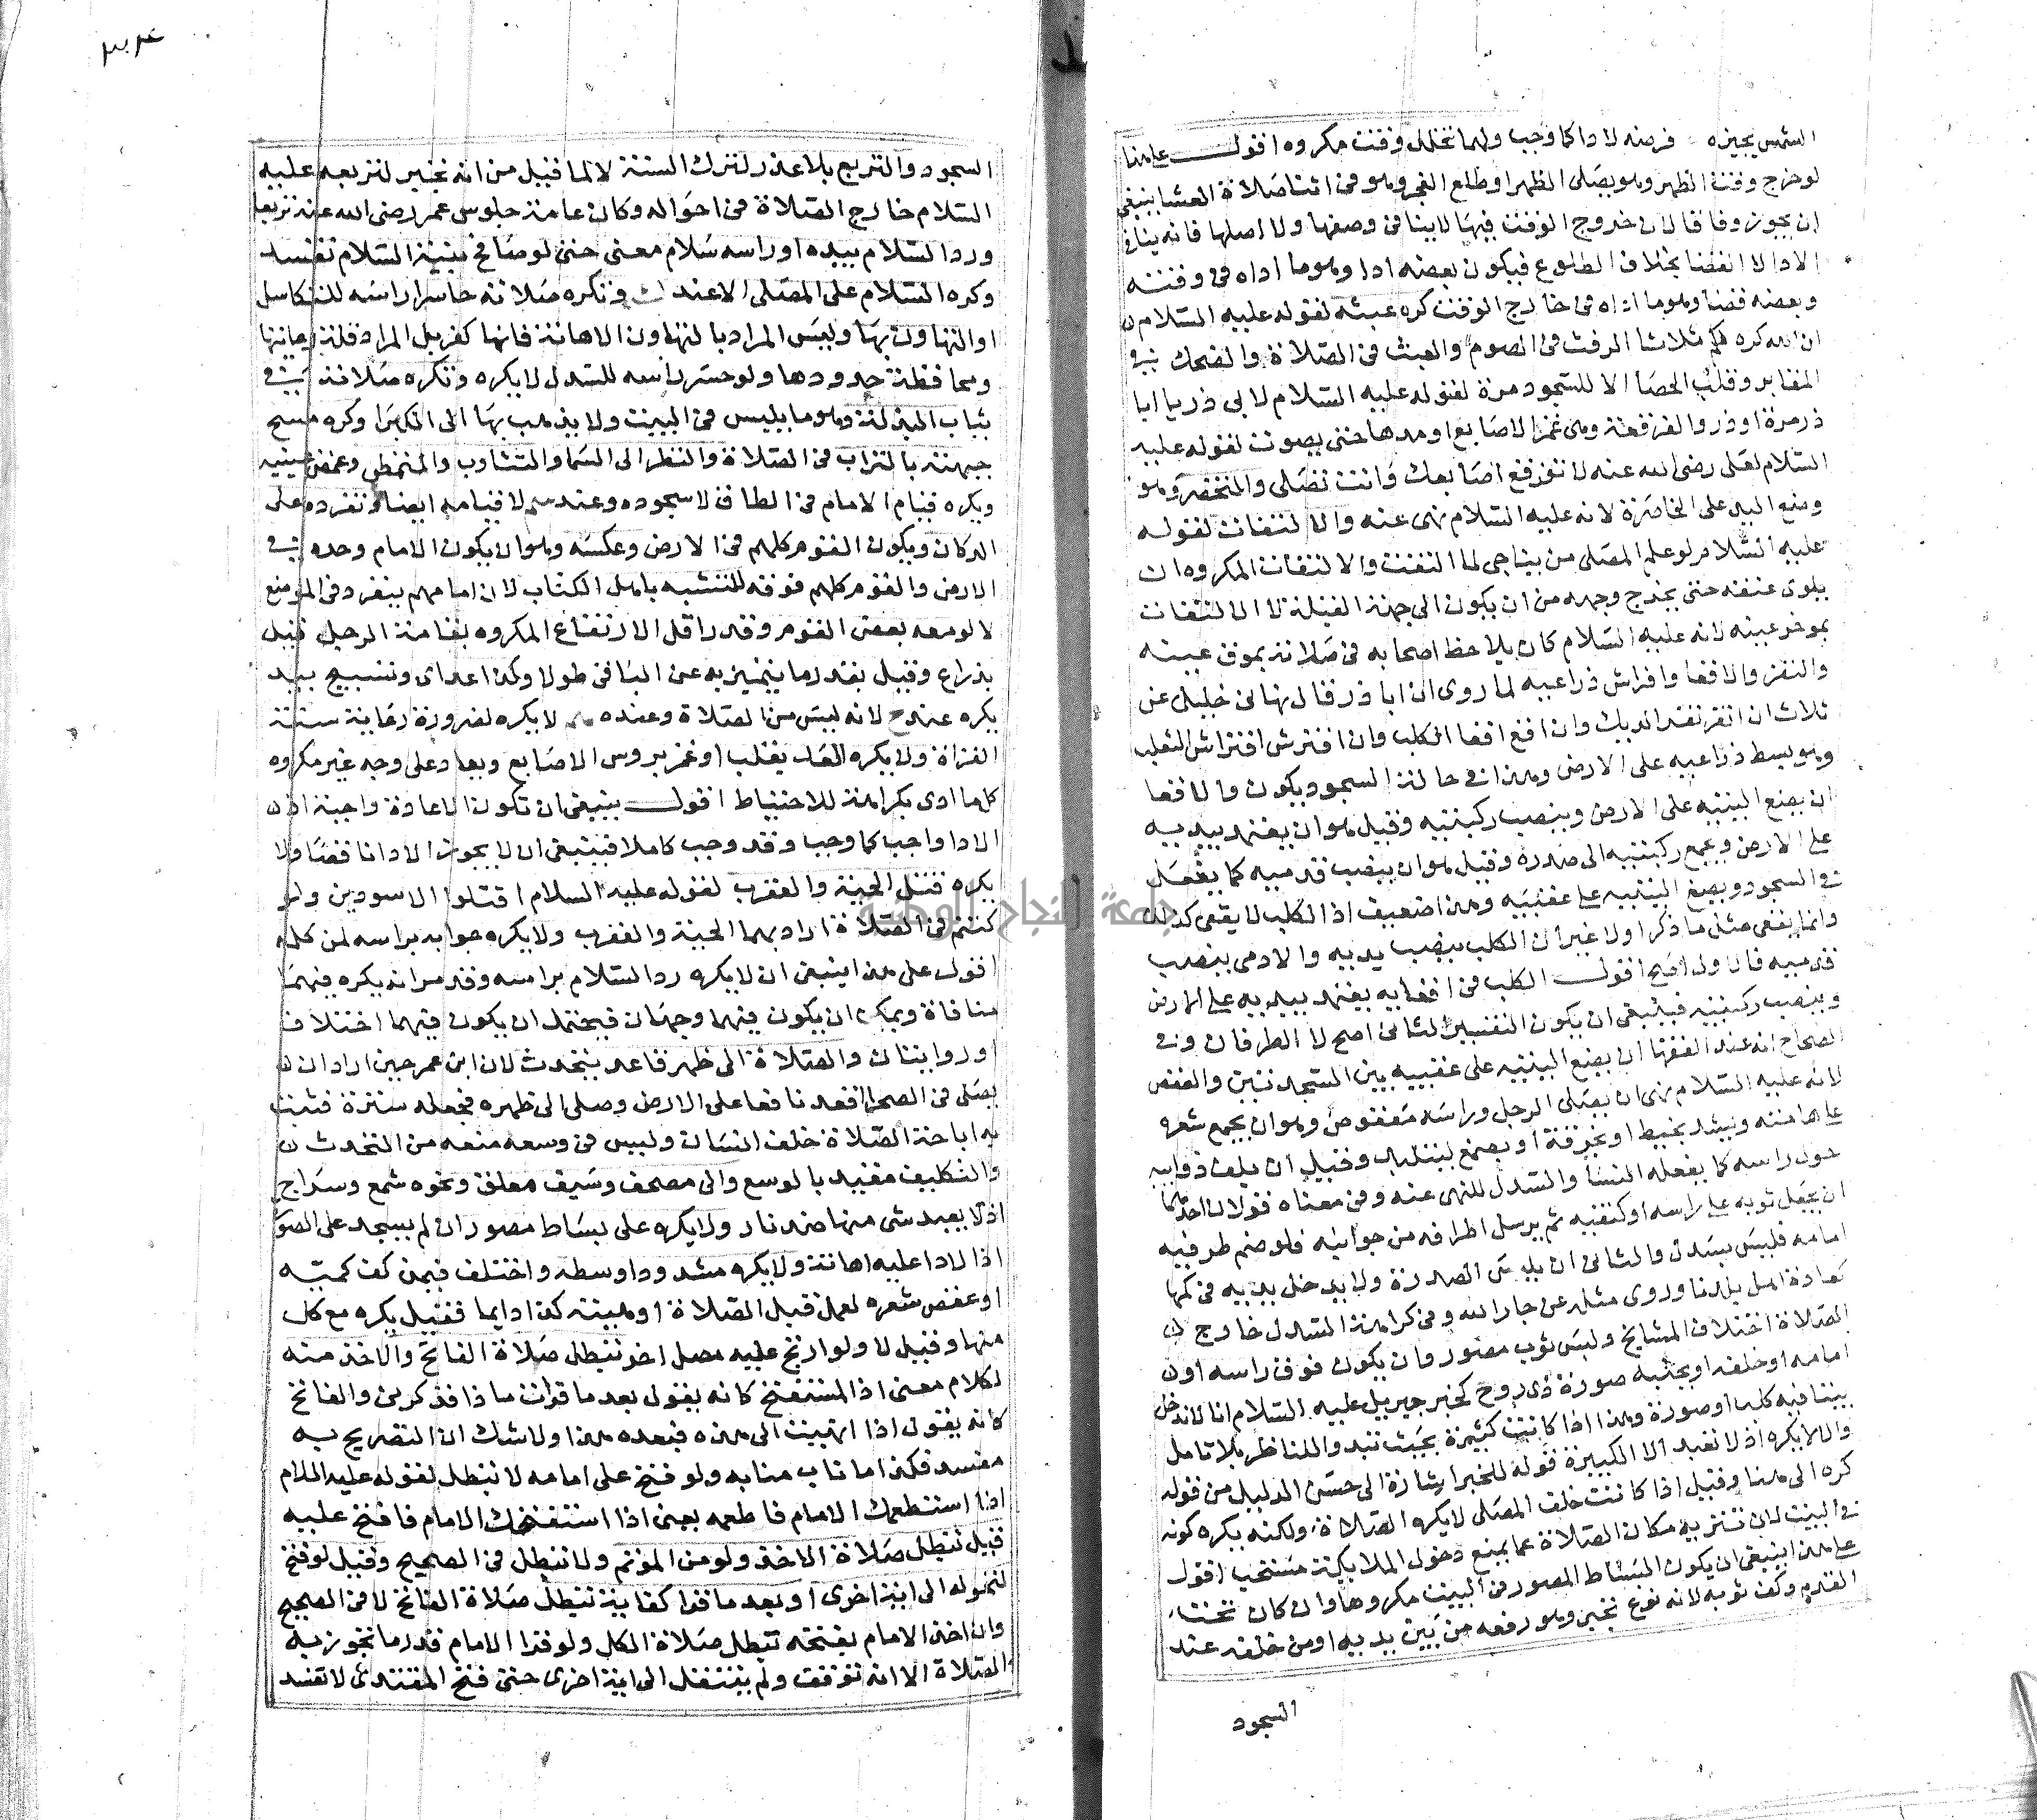 الشمس يجيزه فرضه لاداكما وجب ولهما تخلل وقت مكروه اقول على هذا
لو خرج وقت الظهر وهو يصلى الظهر او طلع الفجر وهو فى اثنا صلاة العشا ينبغى
ان يجوز وفاقا لان خروج الوقت فيها لا ينافى وصفها ولا اصلها فانه ينافى
الادا لا القضا بخلاف الطلوع فيكون بعضه ادا وهو ما اداه فى وقته
وبعضه قضا وهو ما اداه فى خارج الوقت كره عبثه لقوله عليه السلام
ان الله كره لكم ثلاثا الرفث فى الصوم والعبث فى الصلاة والضحك فى
المقابر وقلب الحصا الا للسجود مرة لقوله عليه السلام لابى ذر يا ابا
ذر مرة او ذر والفرقعة وهى غمز الاصابع او مدها حتى يصوت لقوله عليه
السلام لعلى رضى الله عنه لا تفرقع اصابعك وانت تصلى والتخصر وهو
وضع اليد على الخاصرة لانه عليه السلام نهى عنه والالتفات لقوله
عليه السلام لو علم المصلى من يناجى لما التفت والالتفات المكروه ان
يلوى عنقه حتى يخرج وجهه من ان يكون الى جهة القبلة لا الالتفات
بموخر عينه لانه عليه السلام كان يلاحظ اصحابه فى صلاته بموق عينه
والنقر والاقعا وافراش ذراعيه لما روى ان ابا ذر قال نهانى خليلى عن
ثلاث ان انقر نقر الديك وان اقع اقعا الكلب وان افترش افتراش الثعلب
وهو بسط ذراعيه على الارض وهذا فى حالة السجود يكون والاقعا
ان يضع اليتيه على الارض وينصب ركبتيه وقيل هو ان يعتمد بيديه
على الارض ويجمع ركبتيه الى صدره وقيل هو ان ينصب قدميه كما يفعل
فى السجود ويضع اليتيه على عقبيه وهذا ضعيف اذ الكلب لا يقعى كذلك
وانما يقعى مثل ما ذكر اولا غير ان الكلب ينصب يديه والادمى ينصب
قدميه فالاول اصح اقول الكلب فى اقعايه يعتمد بيديه على الارض
وينصب ركبتيه فينبغى ان يكون التفسير الثانى اصح لا الطرفان وفى
الصحاح انه عند الفقها ان يضع اليتيه على عقبيه بين السجدتين والعقص
لانه عليه السلام نهى ان يصلى الرجل وراسه معقوص وهو ان يجمع شعره
على هامته ويشد بخيط او بخرقة او بصمغ ليتلبد وقيل ان يلف ذوايبه
حول راسه كما يفعله النسا والسدل للنهى عنه وفى معناه قولان احدهما
ان يجعل ثوبه على راسه او كتفيه ثم يرسل اطرافه من جوانبه فلو ضم طرفيه
امامه فليس بسدل والثانى ان يلبس الصدرة ولا يدخل يديه فى كمها
كعادة اهل بلدنا وروى مثله عن جار الله وفى كراهة السدل خارج
الصلاة اختلاف المشايخ ولبس ثوب مصور وان يكون فوق راسه او
امامه او خلفه او بجنبه صورة ذى روح لخبر جبريل عليه السلام انا لا ندخل
بيتا فيه كلب او صورة وهذا اذا كانت كبيرة بحيث تبدو للناظر بلا تامل
والا لا يكره اذ لا تعبد الا الكبيرة قوله للخبر اشارة الى حسن الدليل من قوله
كره الى هنا وقيل اذا كانت خلف المصلى لا يكره الصلاة ولكنه يكره كونه
فى البيت لان تنزيه مكان الصلاة عما يمنع دخول الملايكة مستحب اقول
على هذا ينبغى ان يكون البساط المصور فى البيت مكروها وان كان تحت
القدم وكف ثوبه لانه نوع تجبر وهو رفعه من بين يديه او من خلفه عند
السجود
السجود والتربع بلا عذر لترك السنة لا لما قيل من انه تجبر لتربعه عليه
السلام خارج الصلاة فى احواله وكان عامة جلوس عمر رضى الله عنه تربعا
ورد السلام بيده او راسه سلام معنى حتى لو صافح بنية السلام تفسد
وكره السلام على المصلى لا عند وتكره صلاته حاسرا راسه للتكاسل
او التهاون بها وليس المراد بالتهاون الاهانة فانها كفر بل المراد قلة رعايتها
ومحافظة حدودها ولو حسر راسه للتذلل لا يكره وتكره صلاته فى
ثياب البذلة وهو ما يلبس فى البيت ولا يذهب بها الى الكبرا وكره مسح
جبهته بالتراب فى الصلاة والنظر الى السما والتثاوب والتمطى وغمض عينيه
ويكره قيام الامام فى الطاق لا سجوده وعند لا قيامه ايضا وتفرده على
الدكان ويكون القوم كلهم فى الارض وعكسه وهو ان يكون الامام وحده فى
الارض والقوم كلهم فوقه للتشبه باهل الكتاب لان امامهم ينفرد فى الموضع
لا لو معه بعض القوم وقدر اقل الارتفاع المكروه بقامة الرجل قيل
بذراع وقيل بقدر ما يتميز به عن الباقى طولا وكذا عد اى وتسبيح بيد
يكره عند لانه ليس من الصلاة وعنده لا يكره لضرورة رعاية سنة
القراة ولا يكره العد بقلب او غمز بروس الاصابع ويعاد على وجه غير مكروه
كل ما ادى بكراهة للاحتياط اقول ينبغى ان تكون الاعادة واجبة اذ
الادا واجب كما وجب وقد وجب كاملا فينبغى ان لا يجوز الادا ناقصا ولا
يكره قتل الحية والعقرب لقوله عليه السلام اقتلوا الاسودين ولو
كنتم فى الصلاة اراد بهما الحية والعقرب ولا يكره جوابه براسه لمن كلمه
اقول على هذا ينبغى ان لا يكره رد السلام براسه وقد مر انه يكره فبينهما
منافاة ويمكن ان يكون فيهما وجهان فيحتمل ان يكون فيهما اختلاف
او روايتان والصلاة الى ظهر قاعد يتحدث لان ابن عمر حين اراد ان
يصلى فى الصحرا اقعد نافعا على الارض وصلى الى ظهره فجعله سترة فثبت
به اباحة الصلاة خلف انسان وليس فى وسعه منعه من التحدث
والتكليف مقيد بالوسع والى مصحف وسيف معلق ونحوه شمع وسراج
اذ لا يعبد شى منها ضد نار ولا يكره على بساط مصور ان لم يسجد على الصور
اذ الادا عليه اهانة ولا يكره مشدودا وسطه واختلف فيمن كف كميه
او عقص شعره لعمل قبل الصلاة او هيئته كذا دايما فقيل يكره مع كل
منها وقيل لا ولو ارتج عليه مصل اخر تبطل صلاة الفاتح والاخذ منه
لكلام معنى اذ المستفتح كانه يقول بعد ما قرات ماذا فذكرنى والفاتح
كانه يقول اذا انتهيت الى هذه فبعده هذا ولا شك ان التصريح به
مفسد فكذا ما ناب منابه ولو فتح على امامه لا تبطل لقوله عليه السلام
اذا استطعمك الامام فاطعمه يعنى اذا استفتحك الامام فافتح عليه
قيل تبطل صلاة الاخذ ولو من الموتم ولا تبطل فى الصحيح وقيل لو فتح
لتحوله الى اية اخرى او بعد ما قرا كفاية تبطل صلاة الفاتح لا فى الصحيح
وان اخذ الامام بفتحه تبطل صلاة الكل ولو قرا الامام قدر ما تجوز به
الصلاة الا انه توقف ولم ينتقل الى اية اخرى حتى فتح المقتدى لا تفسد
جامعة النجاح الوطنية